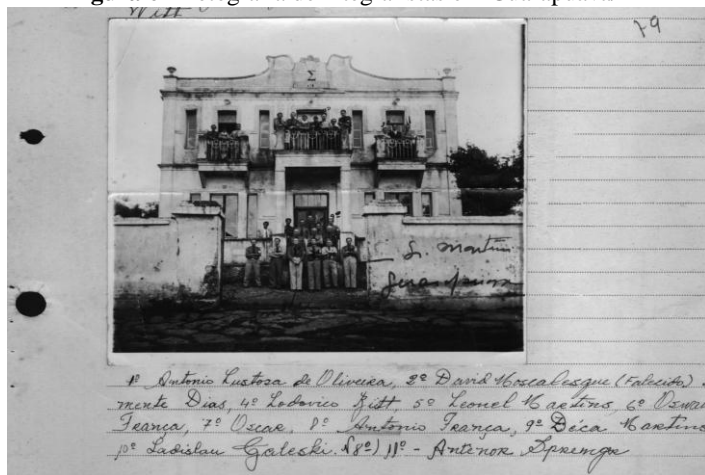 Witt
79
Σ
S. Martins
1º Antonio Lustosa de Oliveira, 2º David Moscalesque (Falecido)
mente Dias, 4º Lodovico Bitt 5º Leonel Martins, 6º Oswal
França, 7º Oscar, 8º Antonio França, 9º Déca Martins
10º Ladislau Goleski. (8º) 11º - Antenor Sprenger